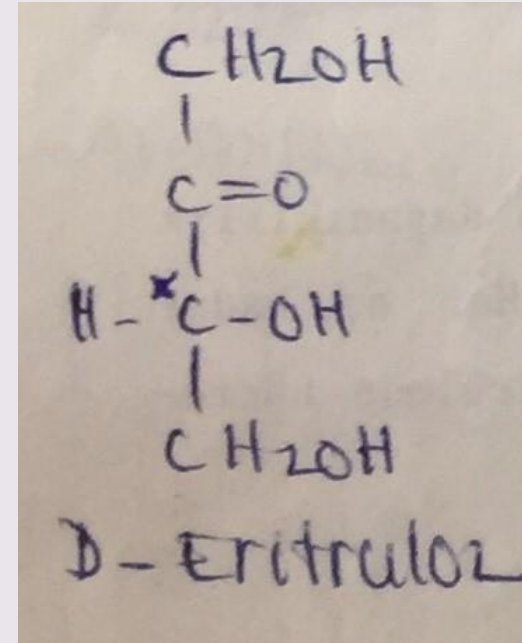 CH2OH
|
C=O
|
H-*C-OH
|
CH2OH
D-Eritruloz